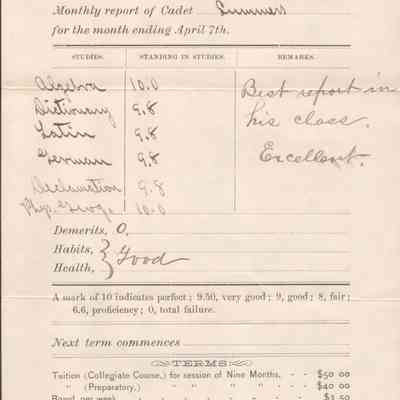 Monthly report of Cadet Summers
for the month ending April 7th.
STUDIES. STANDING IN STUDIES. REMARKS.
Algebra 10.0 Best report in
Dictionary 9.8 his class.
Latin 9.8
German 9.8 Excellent.
Declamation 9.8
Phys. Geog. 10.0
Demerits, 0,
Habits, } Good
Health,
A mark of 10 indicates perfect; 9.50, very good; 9, good; 8, fair;
6.6, proficiency; 0, total failure.
Next term commences
TERMS
Tuition (Collegiate Course,) for session of Nine Months, - - $50 00
" (Preparatory,) " " " " - - $40 00
Board per week $3.50